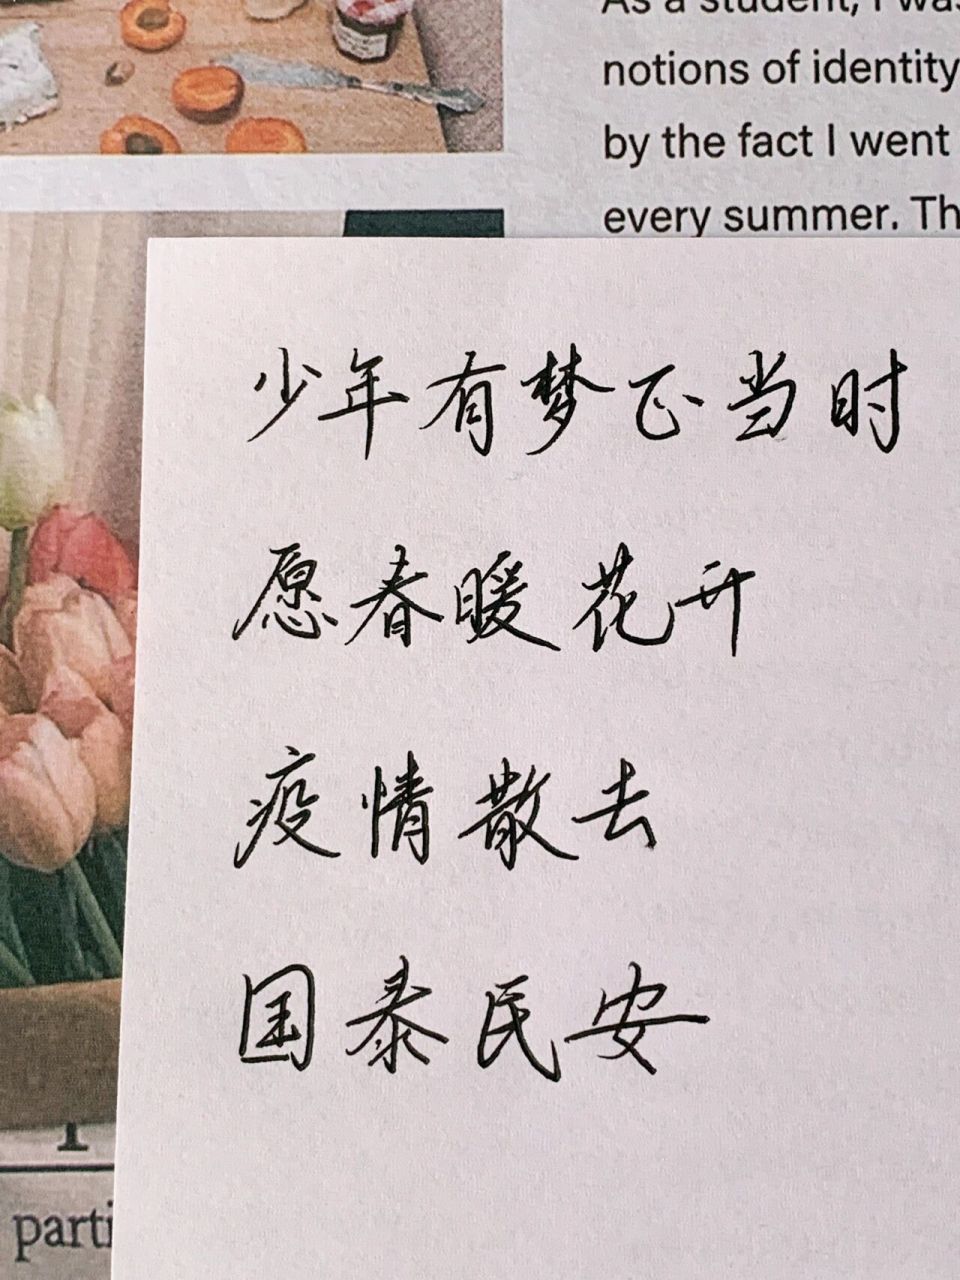 As a student, I was
notions of identity
by the fact I went
every summer. Th
少年有梦正当时
愿春暖花开
疫情散去
国泰民安
parti